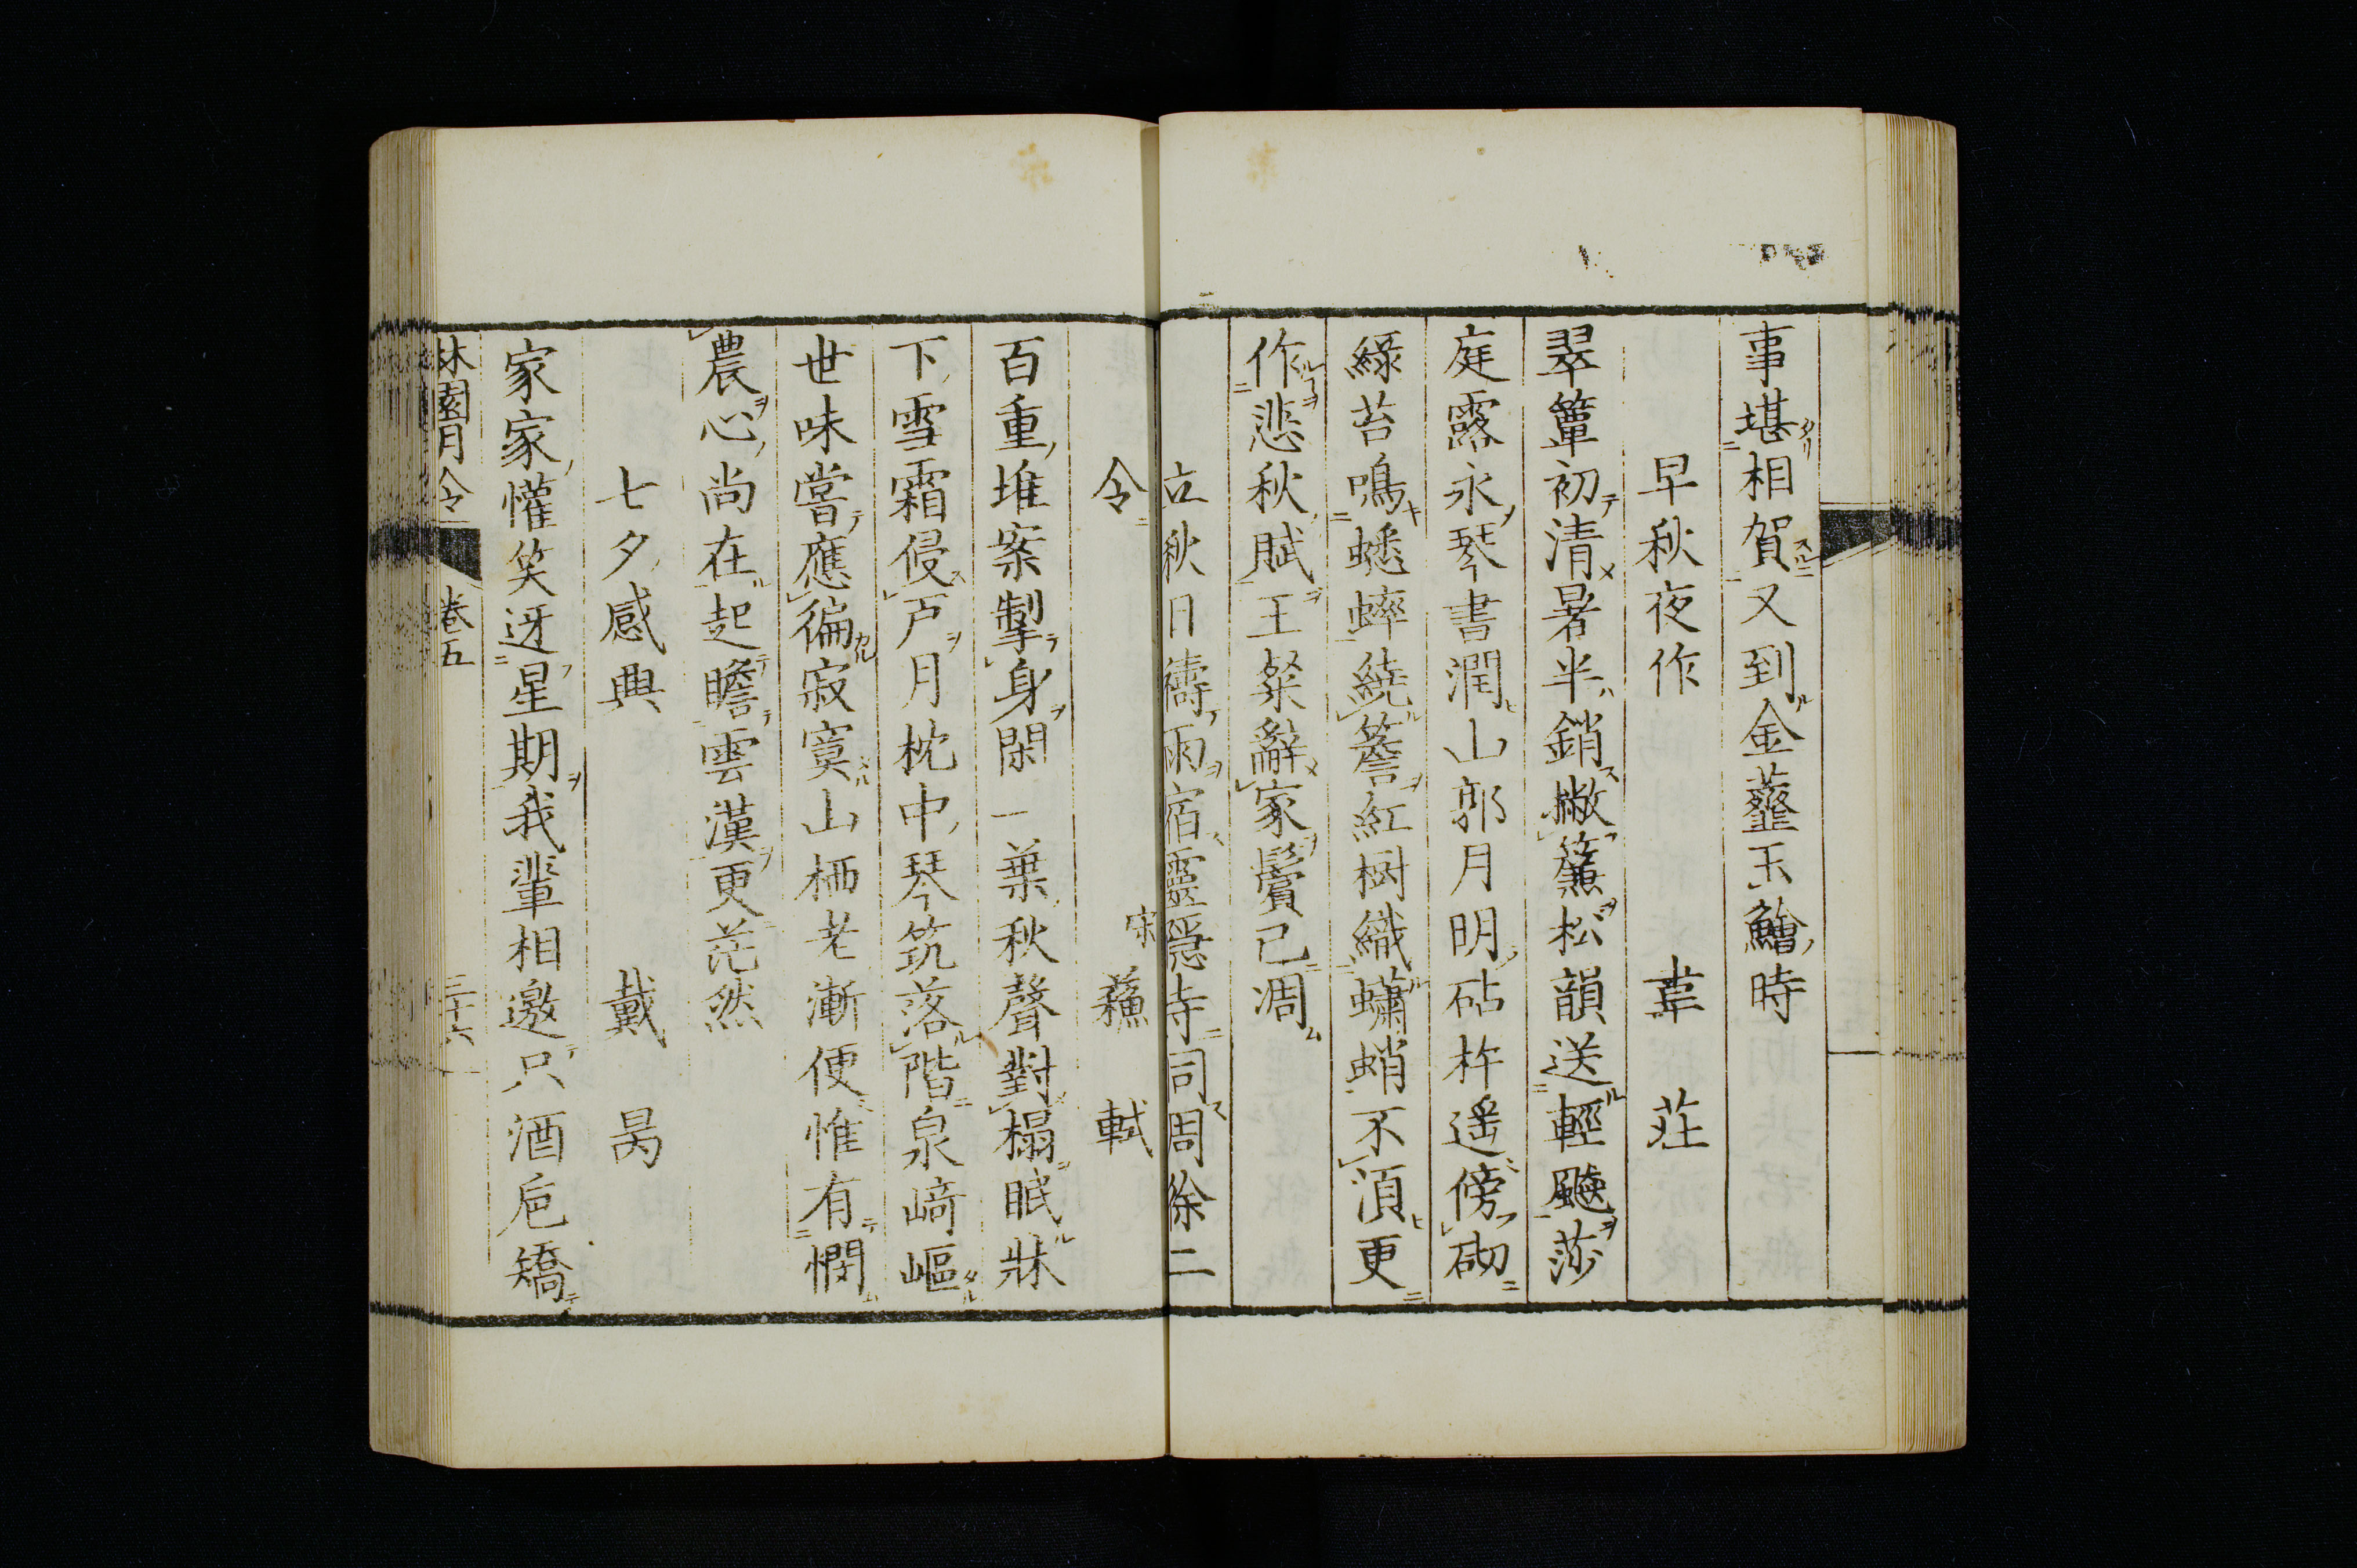 事堪相賀又到金虀玉鱠時
早秋夜作 韋 荘
翠簟初清暑半銷撇簾松韻送輕飈莎
庭露永琴書潤山郭月明砧杵遥傍砌
綠苔鳴蟋蟀繞簷紅樹織蠨蛸不湏更
作悲秋賦王粲辭家鬢已凋
立秋日禱雨宿靈隱寺同周徐二
令 宋 蘓 軾
百重堆案掣身閑一葉秋聲對榻眠牀
下雪霜侵戸月枕中琴筑落階泉崎嶇
世味嘗應徧寂寞山栖老漸便惟有憫
農心尚在起瞻雲漢更茫然
七夕感興 戴 昺
家家懽笑迓星期我輩相邀只酒巵矯
林園月令 卷五 三十六